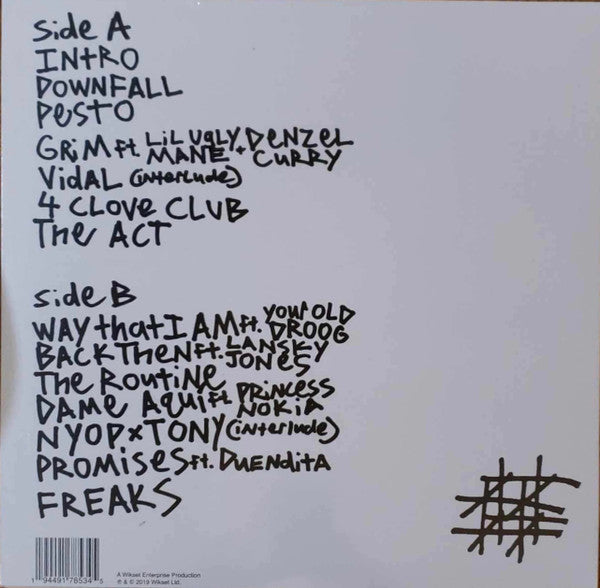 side A
INTRO
DOWNFALL
PesTO
GRiM ft. LiL UGLY MANE + DeNZeL CURRY
ViDAL (interlude)
4 CLOVe CLUB
The ACT
side B
WAY that I AM ft. YOUR OLD DROOG
BACK TheN ft. LANSKY JONes
The RoutiNe
DAMe AQui ft. PRiNCess NOKiA
NYOP x TONY (interlude)
PROMises ft. DUeNditA
FREAKS
1 94491 78534 5
A Wikset Enterprise Production
℗ & © 2019 Wikset Ltd.